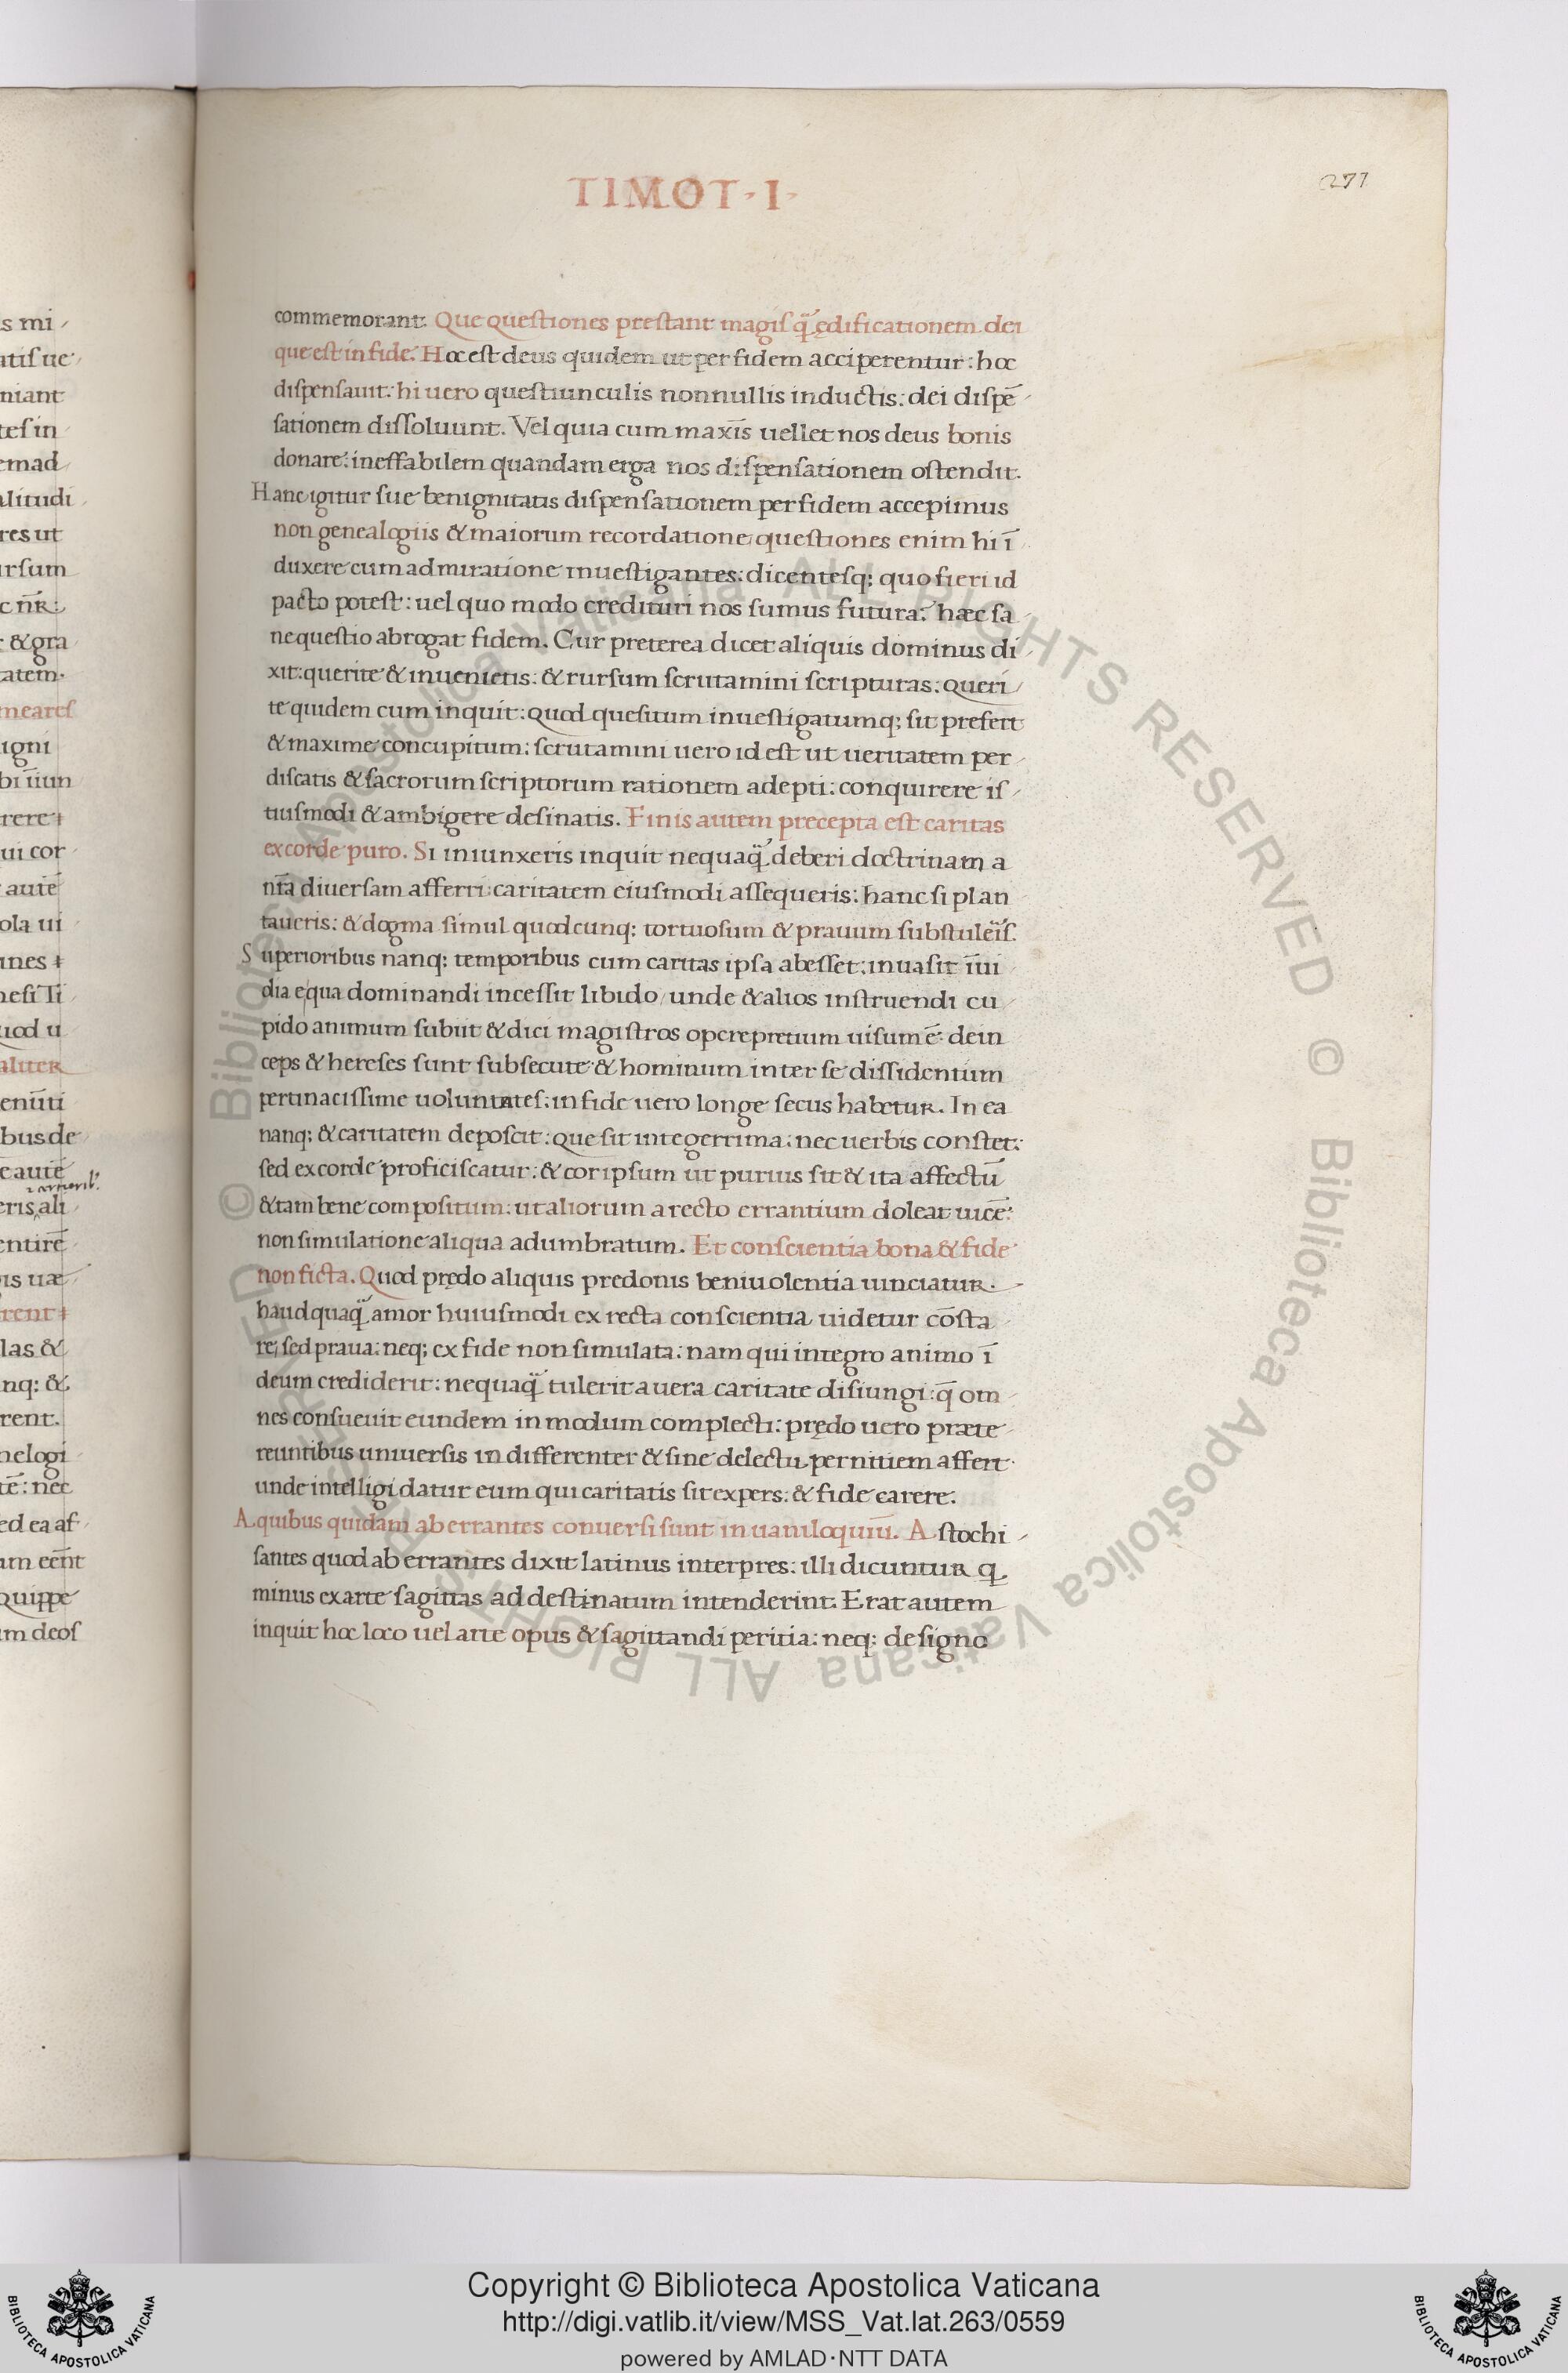 TIMOT · I ·
277
commemorant. Que questiones prestant magis q̃ ędificationem dei
que est in fide. Hoc est deus quidem ut per fidem acciperentur: hoc
dispensauit: hi uero questiunculis nonnullis inductis: dei dispē-
sationem dissoluunt. Vel quia cum maxīs uellet nos deus bonis
donare: ineffabilem quandam erga nos dispensationem ostendit.
Hanc igitur sue benignitatis dispensationem per fidem accepimus
non genealogiis & maiorum recordatione questiones enim hi ī
duxere cum admiratione inuestigantes: dicentesq; quo fieri id
pacto potest: uel quo modo credituri nos sumus futura? hæc sa
ne questio abrogat fidem. Cur preterea dicet aliquis dominus di-
xit: querite & inuenietis: & rursum scrutamini scripturas: Queri
te quidem cum inquit: quod quesitum inuestigatumq; sit prefert
& maxime concupitum: scrutamini uero id est ut ueritatem per-
discatis & sacrorum scriptorum rationem adepti: conquirere is-
tiusmodi & ambigere desinatis. Finis autem precepta est caritas
ex corde puro. Si iniunxeris inquit nequaq̃ deberi doctrinam a
nr̄a diuersam afferri: caritatem eiusmodi assequeris: hanc si plan
taueris: & dogma simul quodcunq; tortuosum & prauum substulēis.
Superioribus nanq; temporibus cum caritas ipsa abesset: inuasit īui
dia e qua dominandi incessit libido, unde & alios instruendi cu-
pido animum subiit & dici magistros operepretium uisum ē: dein
ceps & hereses sunt subsecute & hominum inter se dissidentium
pertinacissime uoluntates: in fide uero longe secus habetur. In ea
nanq; & caritatem deposcit: que sit integerrima: nec uerbis constet:
sed ex corde proficiscatur: & cor ipsum ut purius sit & ita affectū
& tam bene compositum: ut aliorum a recto errantium doleat uicē:
non simulatione aliqua adumbratum. Et conscientia bona & fide
non ficta. Quod prędo aliquis predonis beniuolentia uinciatur.
haudquaq̃ amor huiusmodi ex recta conscientia uidetur cōsta-
re, sed praua: neq; ex fide non simulata: nam qui integro animo ī
deum crediderit: nequaq̃ tulerit a uera caritate disiungi: q̄ om-
nes consueuit eundem in modum complecti: prędo uero præte-
reuntibus uniuersis indifferenter & sine delectu pernitiem affert
unde intelligi datur eum qui caritatis sit expers: & fide carere.
A quibus quidam aberrantes conuersi sunt in uaniloquiū. Astochi-
santes quod aberrantes dixit latinus interpres: illi dicuntur q
minus ex arte sagittas ad destinatum intenderint. Erat autem
inquit hoc loco uel arte opus & sagittandi peritia: neq; de signo
© Biblioteca Apostolica Vaticana ALL RIGHTS RESERVED © Biblioteca Apostolica Vaticana ALL RIGHTS RESERVED
Copyright © Biblioteca Apostolica Vaticana
http://digi.vatlib.it/view/MSS_Vat.lat.263/0559
powered by AMLAD·NTT DATA
BIBLIOTECA APOSTOLICA VATICANA
BIBLIOTECA APOSTOLICA VATICANA